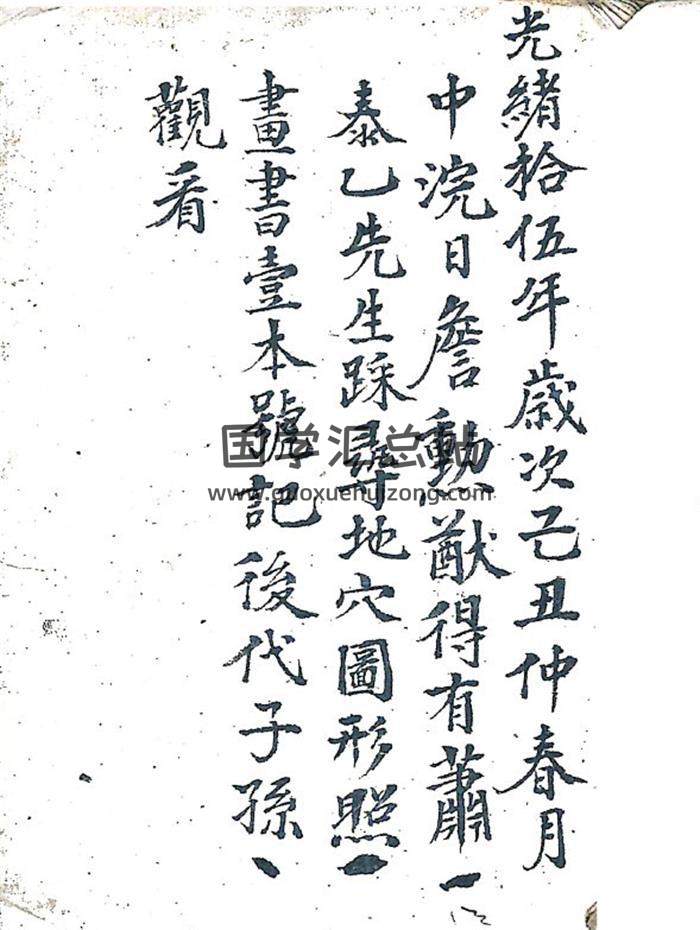 光緒拾伍年歲次己丑仲春月
中浣日詹勳猷得有蕭
泰乙先生踩尋地穴圖形照
畫書壹本號記後代子孫
觀看
国学汇总站
www.guoxuehuizong.com